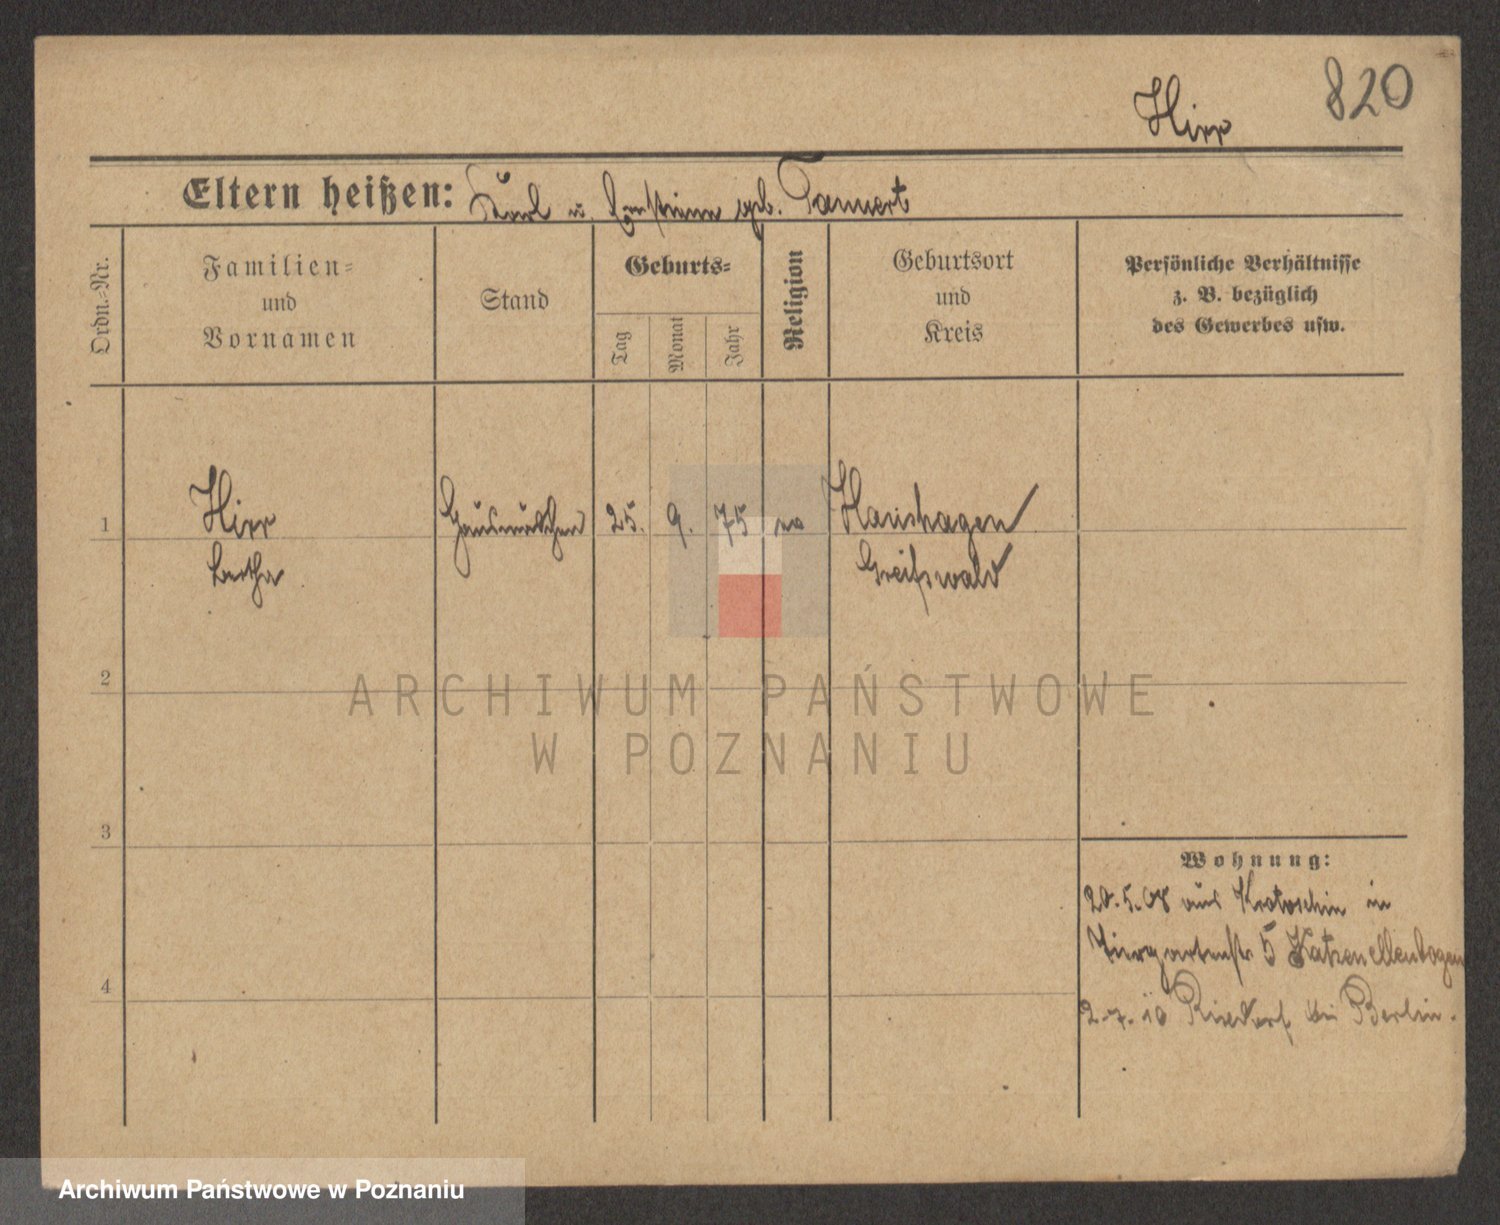 820
Hirr
Eltern heißen: Karl u. Ernstine geb. Tannert
Ordn.-Nr.
Familien-
und
Vornamen
Stand
Geburts-
Tag
Monat
Jahr
Religion
Geburtsort
und
Kreis
Persönliche Verhältnisse
z. B. bezüglich
des Gewerbes usw.
1
Hirr
Bertha
Hausmädchen
25.
9.
75
ev
Hanshagen
Greifswald
2
ARCHIWUM PAŃSTWOWE
W POZNANIU
3
Wohnung:
20.5.08 aus Krotoschin in
Tiergartenstr 5 Katzenellenbogen
4
2.7.10 Rixdorf bei Berlin.
Archiwum Państwowe w Poznaniu